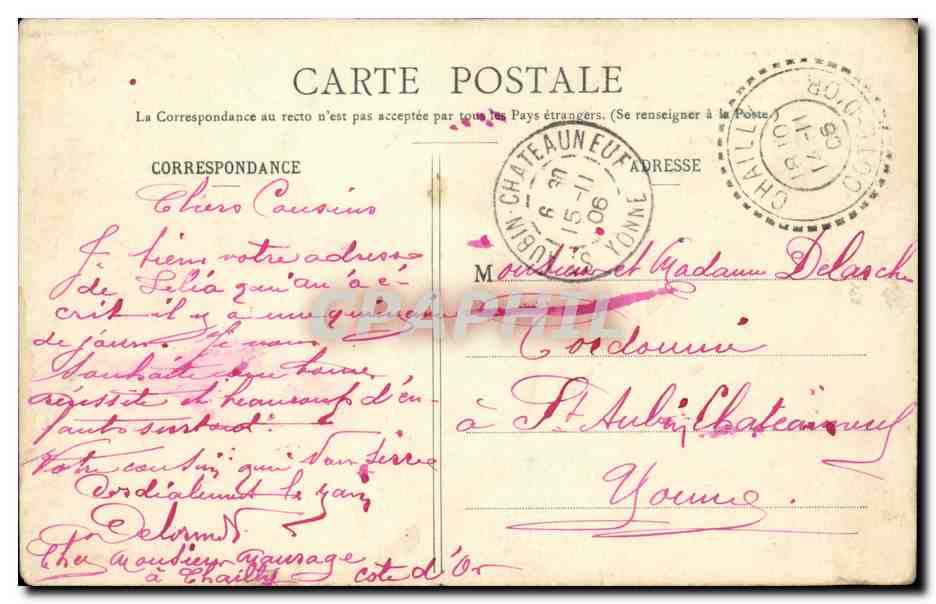 CARTE POSTALE
La Correspondance au recto n'est pas acceptée par tous les Pays étrangers. (Se renseigner à la Poste
CORRESPONDANCE
ADRESSE
CHAILLY COTE-D'OR
14-11 06
ST AUBIN-CHATEAUNEUF YONNE
6 30
15-11
06
Chers Cousins
Je tiens votre adresse
de Lélia qu'an a é-
crit il y a une quinzaine
de jours. Je vous
souhaite une bonne
réussite et beaucoup d'en-
fants surtout.
Votre cousin qui vous serre
cordialement la main
Delorme
Chez Monsieur Mansage
à Chailly cote d'Or
Monsieur et Madame Delasche
Cordonnie
à St Aubin Chateauneuf
Yonne.
CPAPHIL